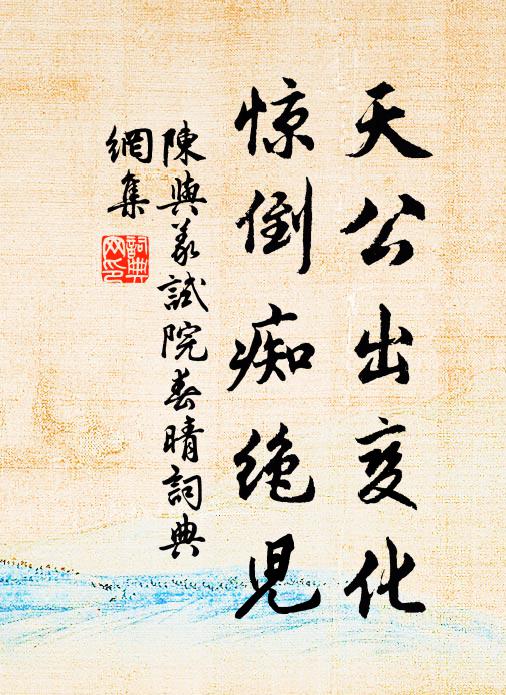 天公出变化
惊倒痴绝儿
陳與義試院春晴詞典
網集
詞典
网印